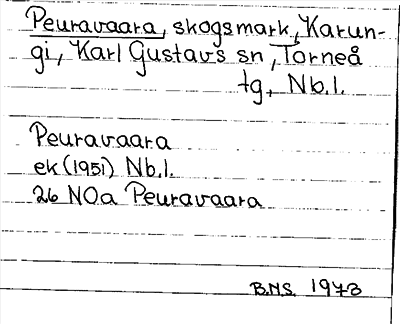 Peuravaara, skogsmark, Karun-
gi, Karl Gustavs sn, Torneå
tg, Nb.l.
Peuravaara
ek (1951) Nb.l.
26 NOa Peuravaara
B.N.S. 1973